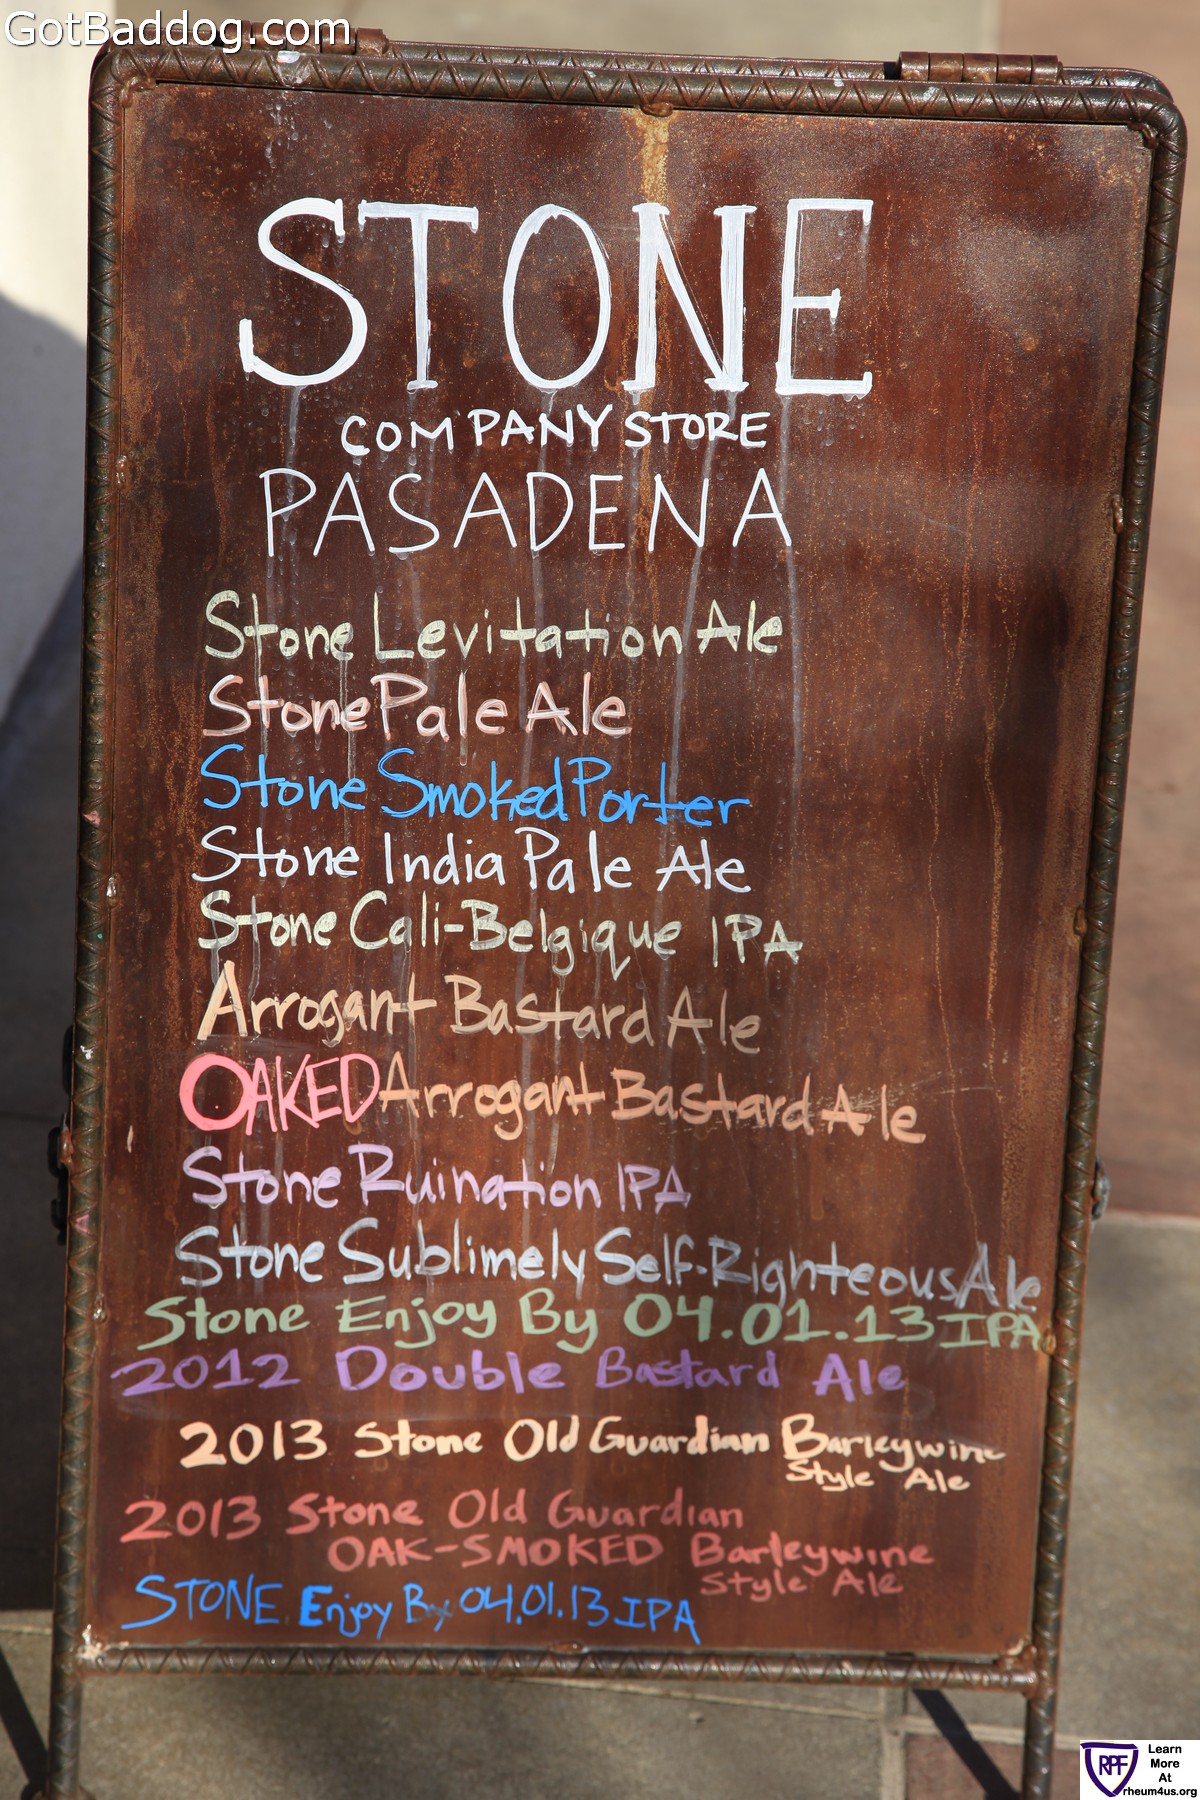 GotBaddog.com
STONE
COMPANY STORE
PASADENA
Stone Levitation Ale
Stone Pale Ale
Stone Smoked Porter
Stone India Pale Ale
Stone Cali-Belgique IPA
Arrogant Bastard Ale
OAKED Arrogant Bastard Ale
Stone Ruination IPA
Stone Sublimely Self-Righteous Ale
Stone Enjoy By 04.01.13 IPA
2012 Double Bastard Ale
2013 Stone Old Guardian Barleywine
Style Ale
2013 Stone Old Guardian
OAK-SMOKED Barleywine
Style Ale
STONE Enjoy By 04.01.13 IPA
RPF
Learn
More
At
rheum4us.org